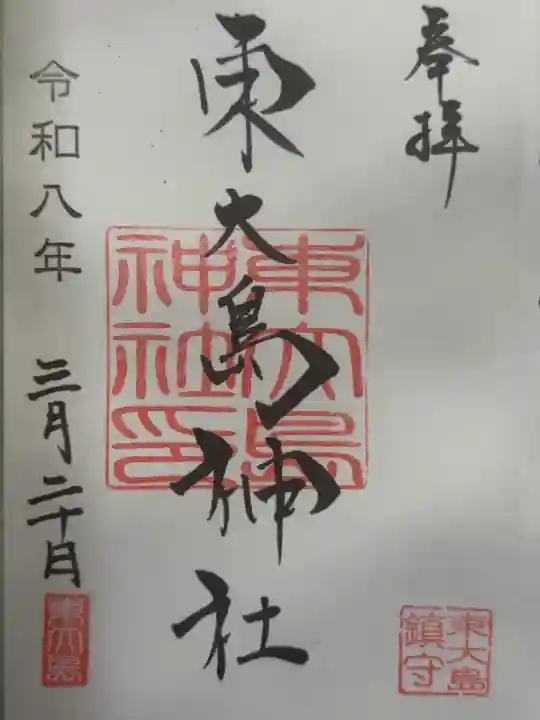 奉拝
東大島神社
東大島神社印
東大島
鎮守
令和八年 三月二十日
東大島